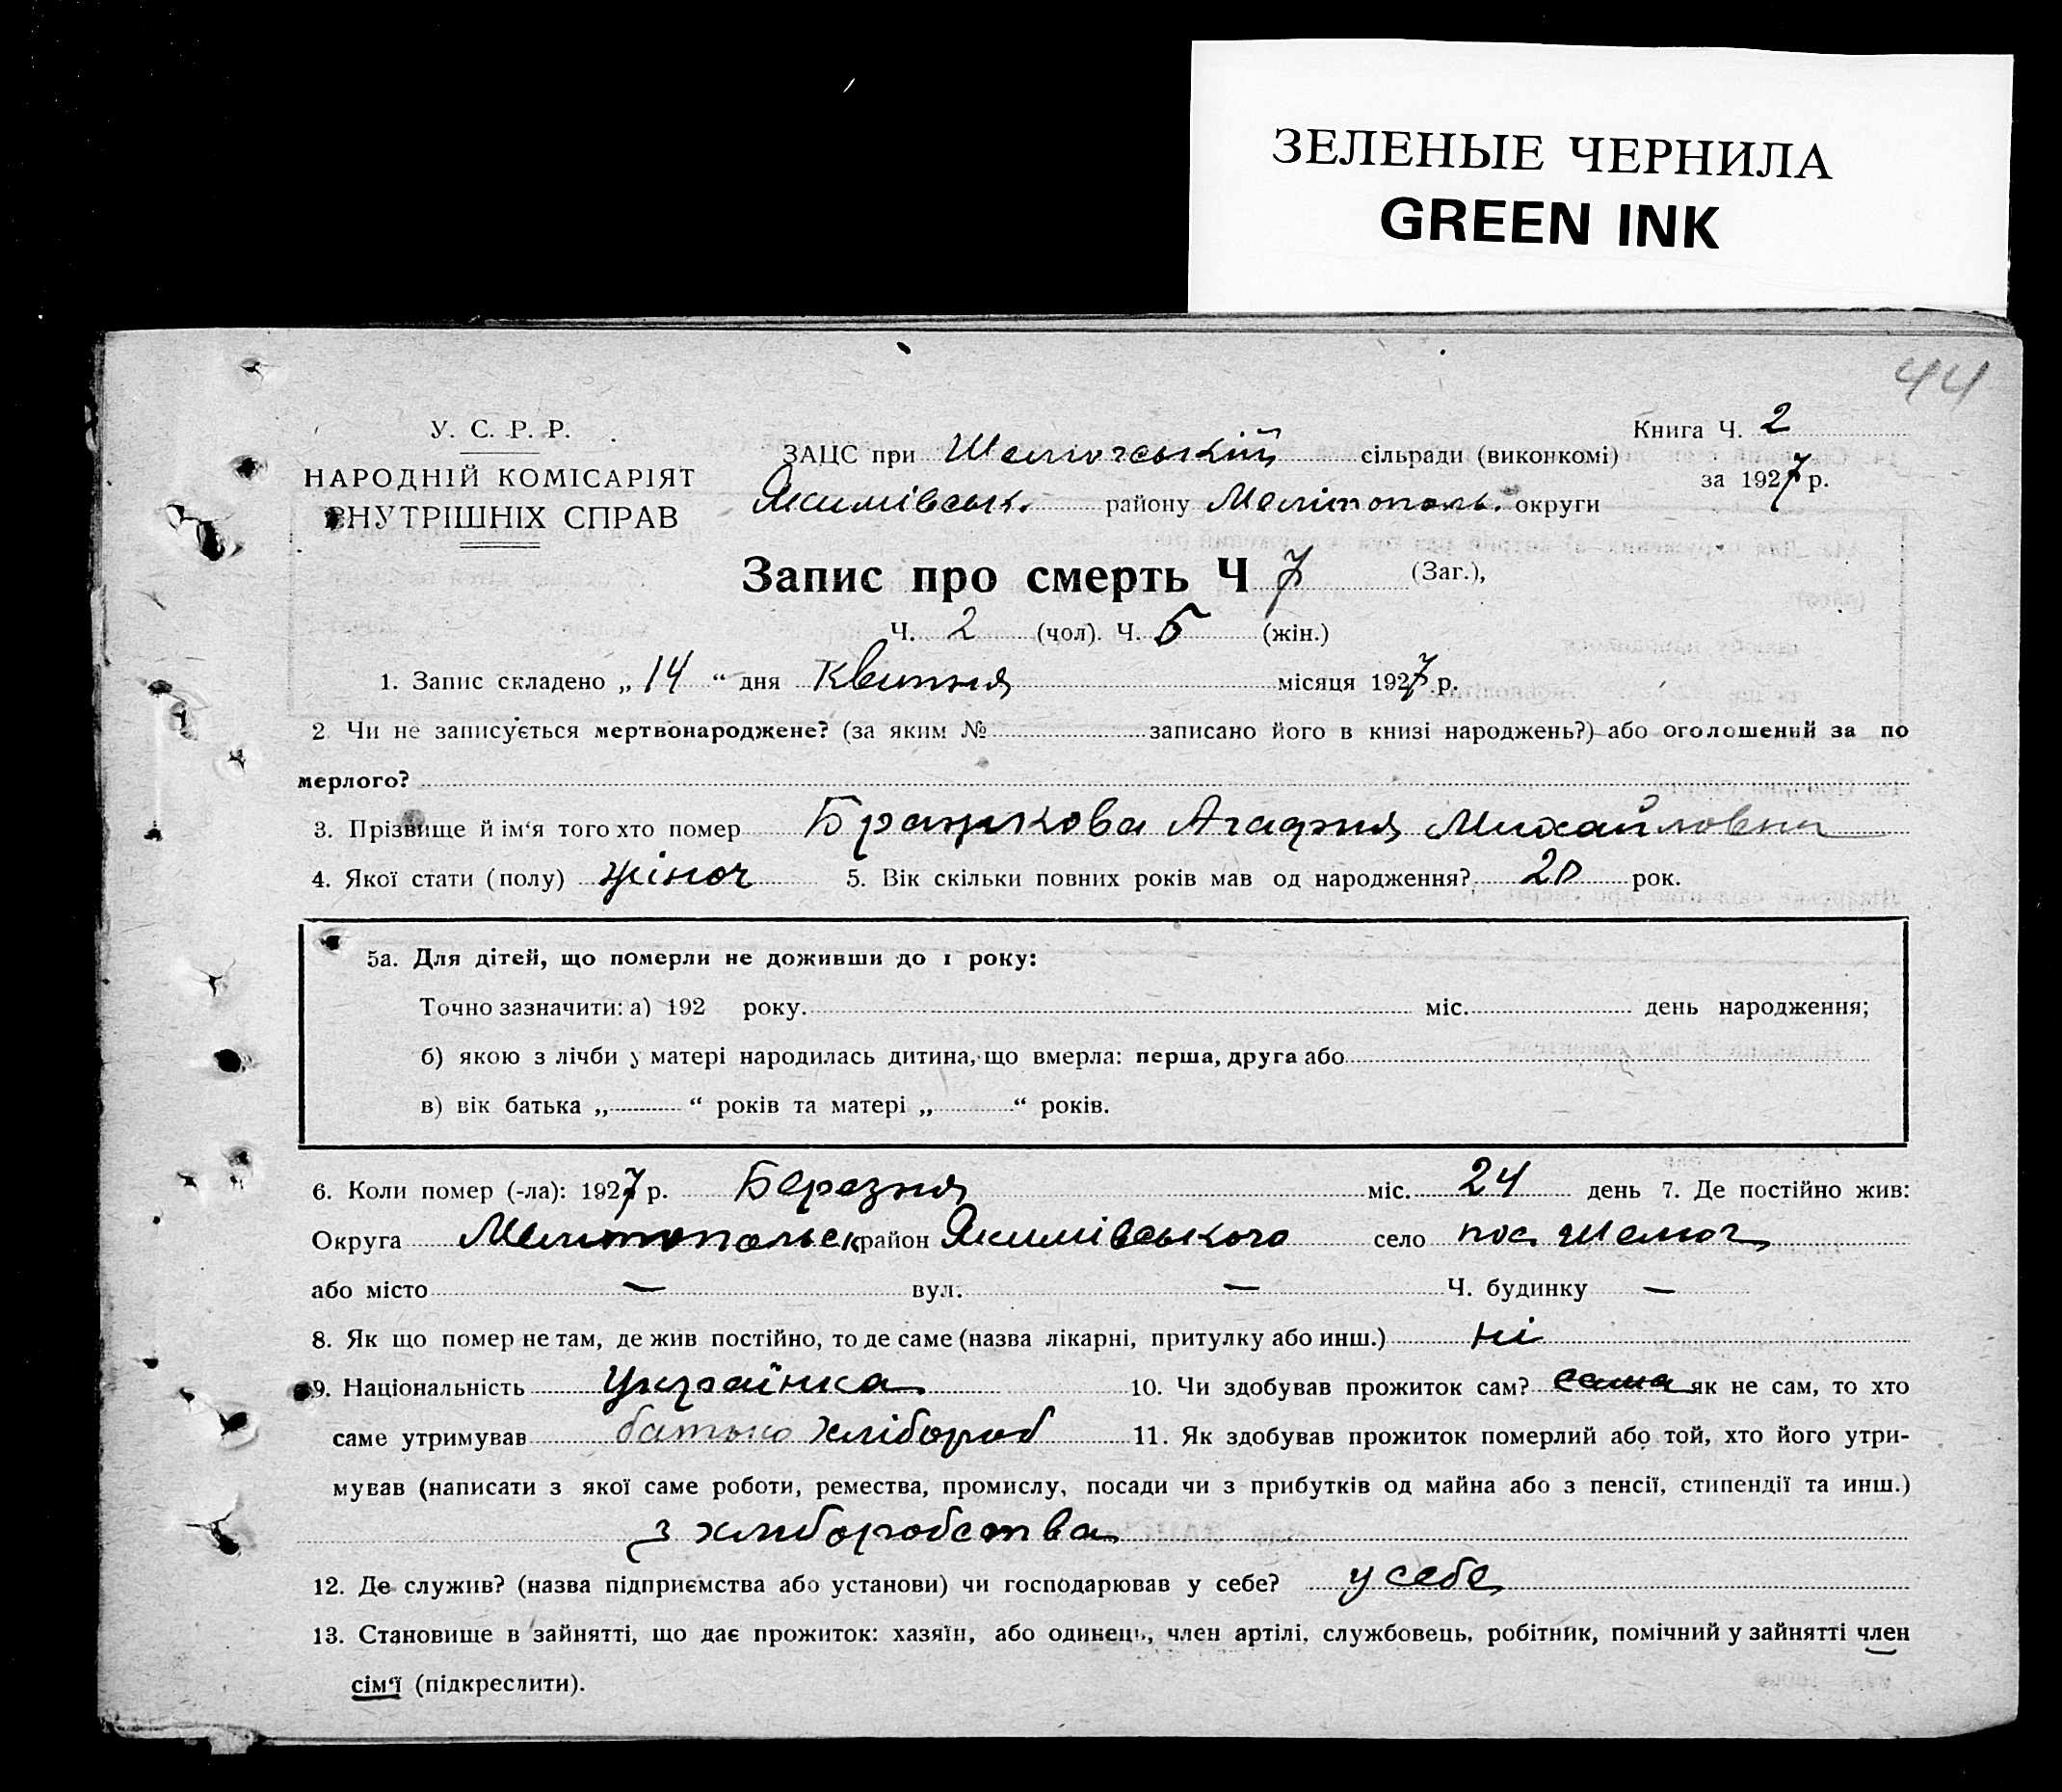 ЗЕЛЕНЫЕ ЧЕРНИЛА
GREEN INK
44
У. С. Р. Р.
НАРОДНІЙ КОМІСАРІЯТ
ВНУТРІШНІХ СПРАВ
ЗАЦС при сільради (виконкомі)
Якимівськ. району Мелітополь. округи
Книга Ч. 2
за 1927 р.
Запис про смерть Ч 7 (Заг.),
Ч. 2 (чол). Ч. 5 (жін.)
1. Запис складено „ 14 “ дня Квитня місяця 1927 р.
2. Чи не записується мертвонароджене? (за яким № записано його в книзі народжень?) або оголошений за по
мерлого?
3. Прізвище й ім‘я того хто помер Агафия Михайловна
4. Якої стати (полу) жіноч 5. Вік скільки повних років мав од народження? 20 рок.
5а. Для дітей, що померли не доживши до 1 року:
Точно зазначити: а) 192 року. міс. день народження;
б) якою з лічби у матері народилась дитина, що вмерла: перша, друга або
в) вік батька „ “ років та матері „ “ років.
6. Коли помер (-ла): 1927 р. Березня міс. 24 день 7. Де постійно жив:
Округа Мелитопольск район Якимівського село пос.
або місто — вул. — Ч. будинку —
8. Як що помер не там, де жив постійно, то де саме (назва лікарні, притулку або инш.) ні
9. Національність Українка 10. Чи здобував прожиток сам? сама як не сам, то хто
саме утримував батько хлібороб 11. Як здобував прожиток померлий або той, хто його утри-
мував (написати з якої саме роботи, ремества, промислу, посади чи з прибутків од майна або з пенсії, стипендії та инш.)
з хлиборобства
12. Де служив? (назва підприємства або установи) чи господарював у себе? у себе
13. Становище в зайнятті, що дає прожиток: хазяїн, або одинець, член артілі, службовець, робітник, помічний у зайнятті член
сім‘ї (підкреслити).